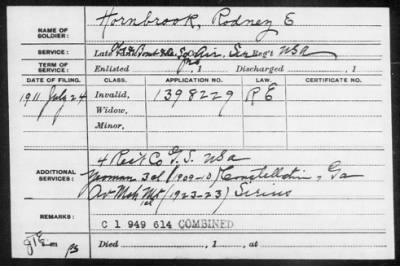 NAME OF SOLDIER: Hornbrook, Rodney E
SERVICE: Late Air. Ser Reg't USA
TERM OF SERVICE: Enlisted , 1 Discharged , 1
DATE OF FILING. CLASS. APPLICATION NO. LAW. CERTIFICATE NO.
1911 July 24 Invalid, 1398229 R E
Widow,
Minor,
4 Rec't Co G.S. USA
ADDITIONAL SERVICES: Yeoman 3 cl (1909-10) Constellation, Ga
Av Mch Mt 1st (1923-23) Sirius
REMARKS:
C 1 949 614 COMBINED
Died , 1 , at